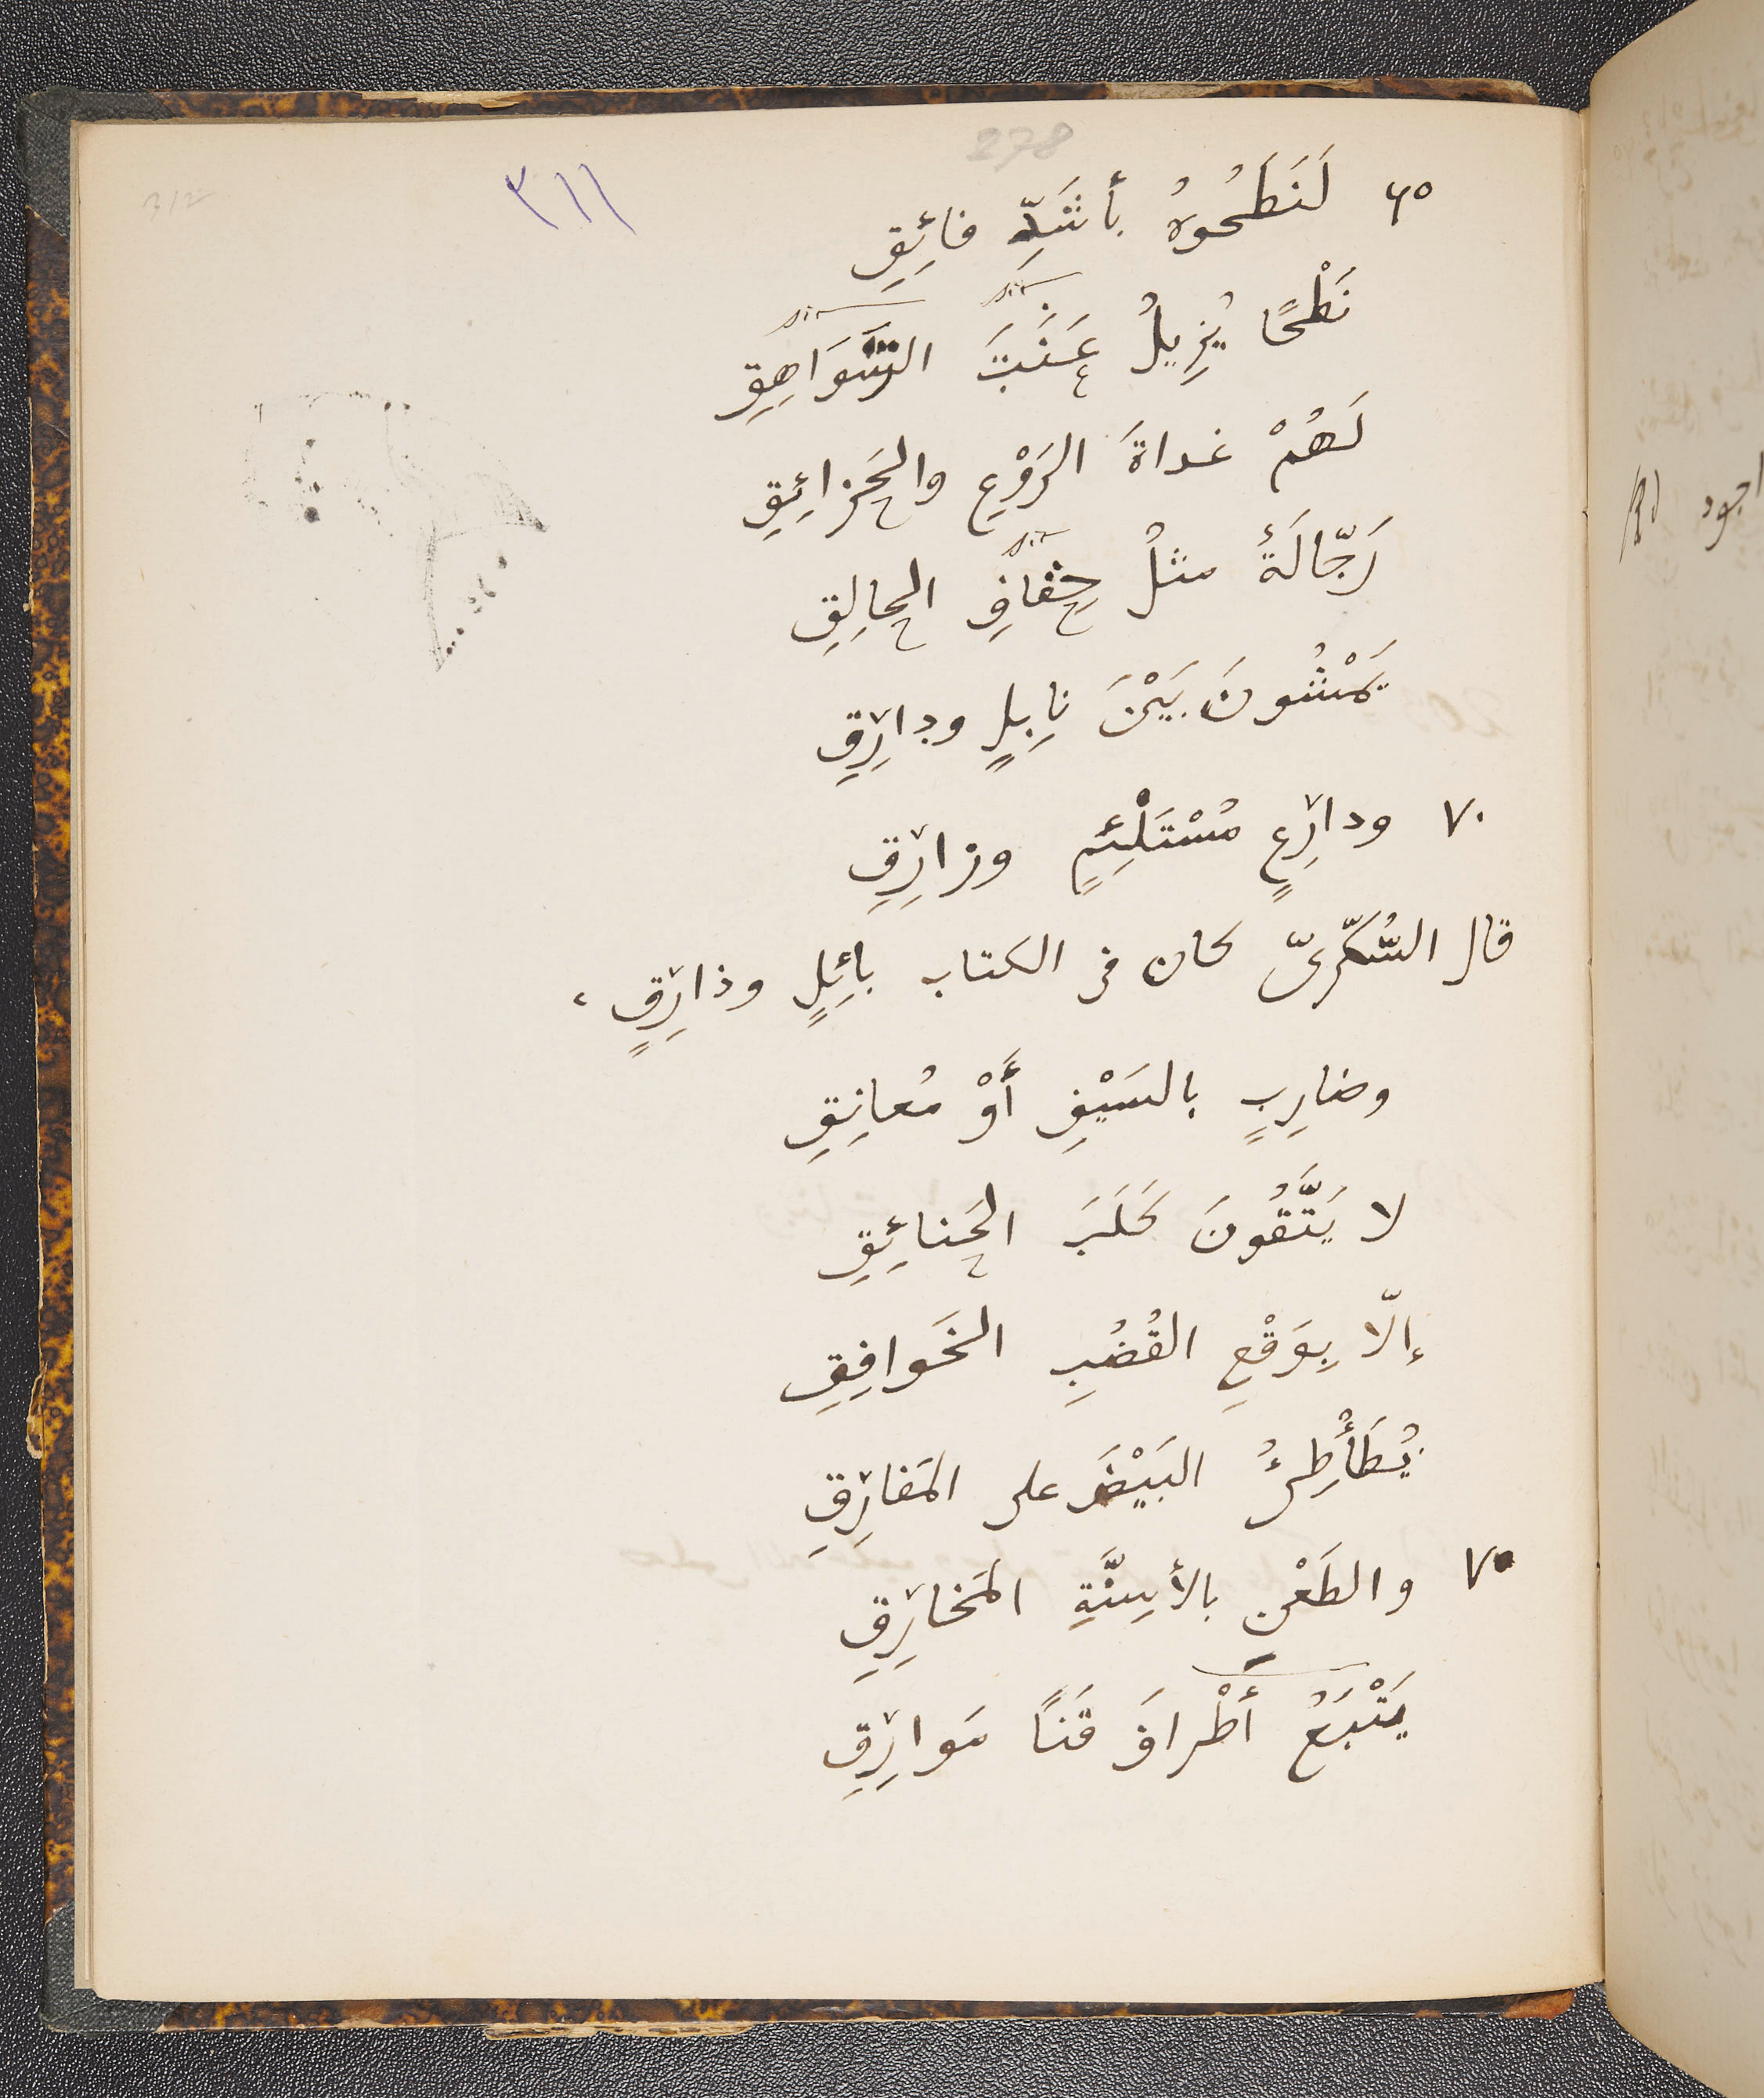 278
٣١١
312
٦٥ لَنَطَحُوهُ بأَشَدِّ فائِقِ
نَطْحًا يُزِيلُ عَنَتَ الشَّوَاهِقِ
لَهُمْ غداةَ الرَوْعِ والحَزائِقِ
رَجّالَةٌ مثلُ حِفافِ الحالِقِ
يَمْشُونَ بَيْنَ نابِلٍ ودارِقِ
٧٠ ودارِعٍ مُسْتَلْئِمٍ وزارِقِ
قال السُّكَّرىّ كان فى الكتاب بائِلٍ وذارِقٍ،
وضارِبٍ بالسَيْفِ أَوْ مُعانِقِ
لا يَتَّقُونَ حَلَبَ الحَنائِقِ
إلّا بِوَقْعِ القُضُبِ الخَوافِقِ
يُطَأْطِئُ البَيْضَ على المَفارِقِ
٧٥ والطَعْنِ بالأسِنَّةِ المَخارِقِ
يَتْبَعُ أَطْرافَ قَنًا مَوارِقِ
اجود